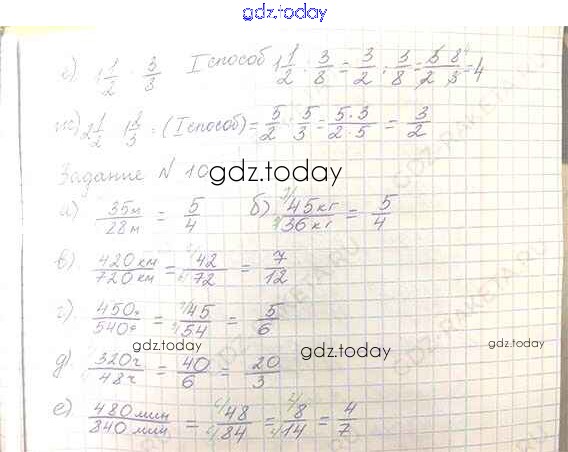 gdz.today
е) 1 1/2 : 3/8 I способ 1 1/2 : 3/8 = 3/2 : 3/8 = 3·8/2·3 = 4
ж) 2 1/2 : 1 2/3 = (I способ) = 5/2 : 5/3 = 5·3/2·5 = 3/2
Задание N 10
gdz.today
а) 35м/28м = 5/4 б) 45кг/36кг = 5/4
в) 420км/720км = 42/72 = 7/12
г) 450г/540г = 45/54 = 5/6
gdz.today
gdz.today
д) 320ч/48ч = 40/6 = 20/3
е) 480мин/840мин = 48/84 = 8/14 = 4/7
gdz.today
GDZ-RAKETA.RU